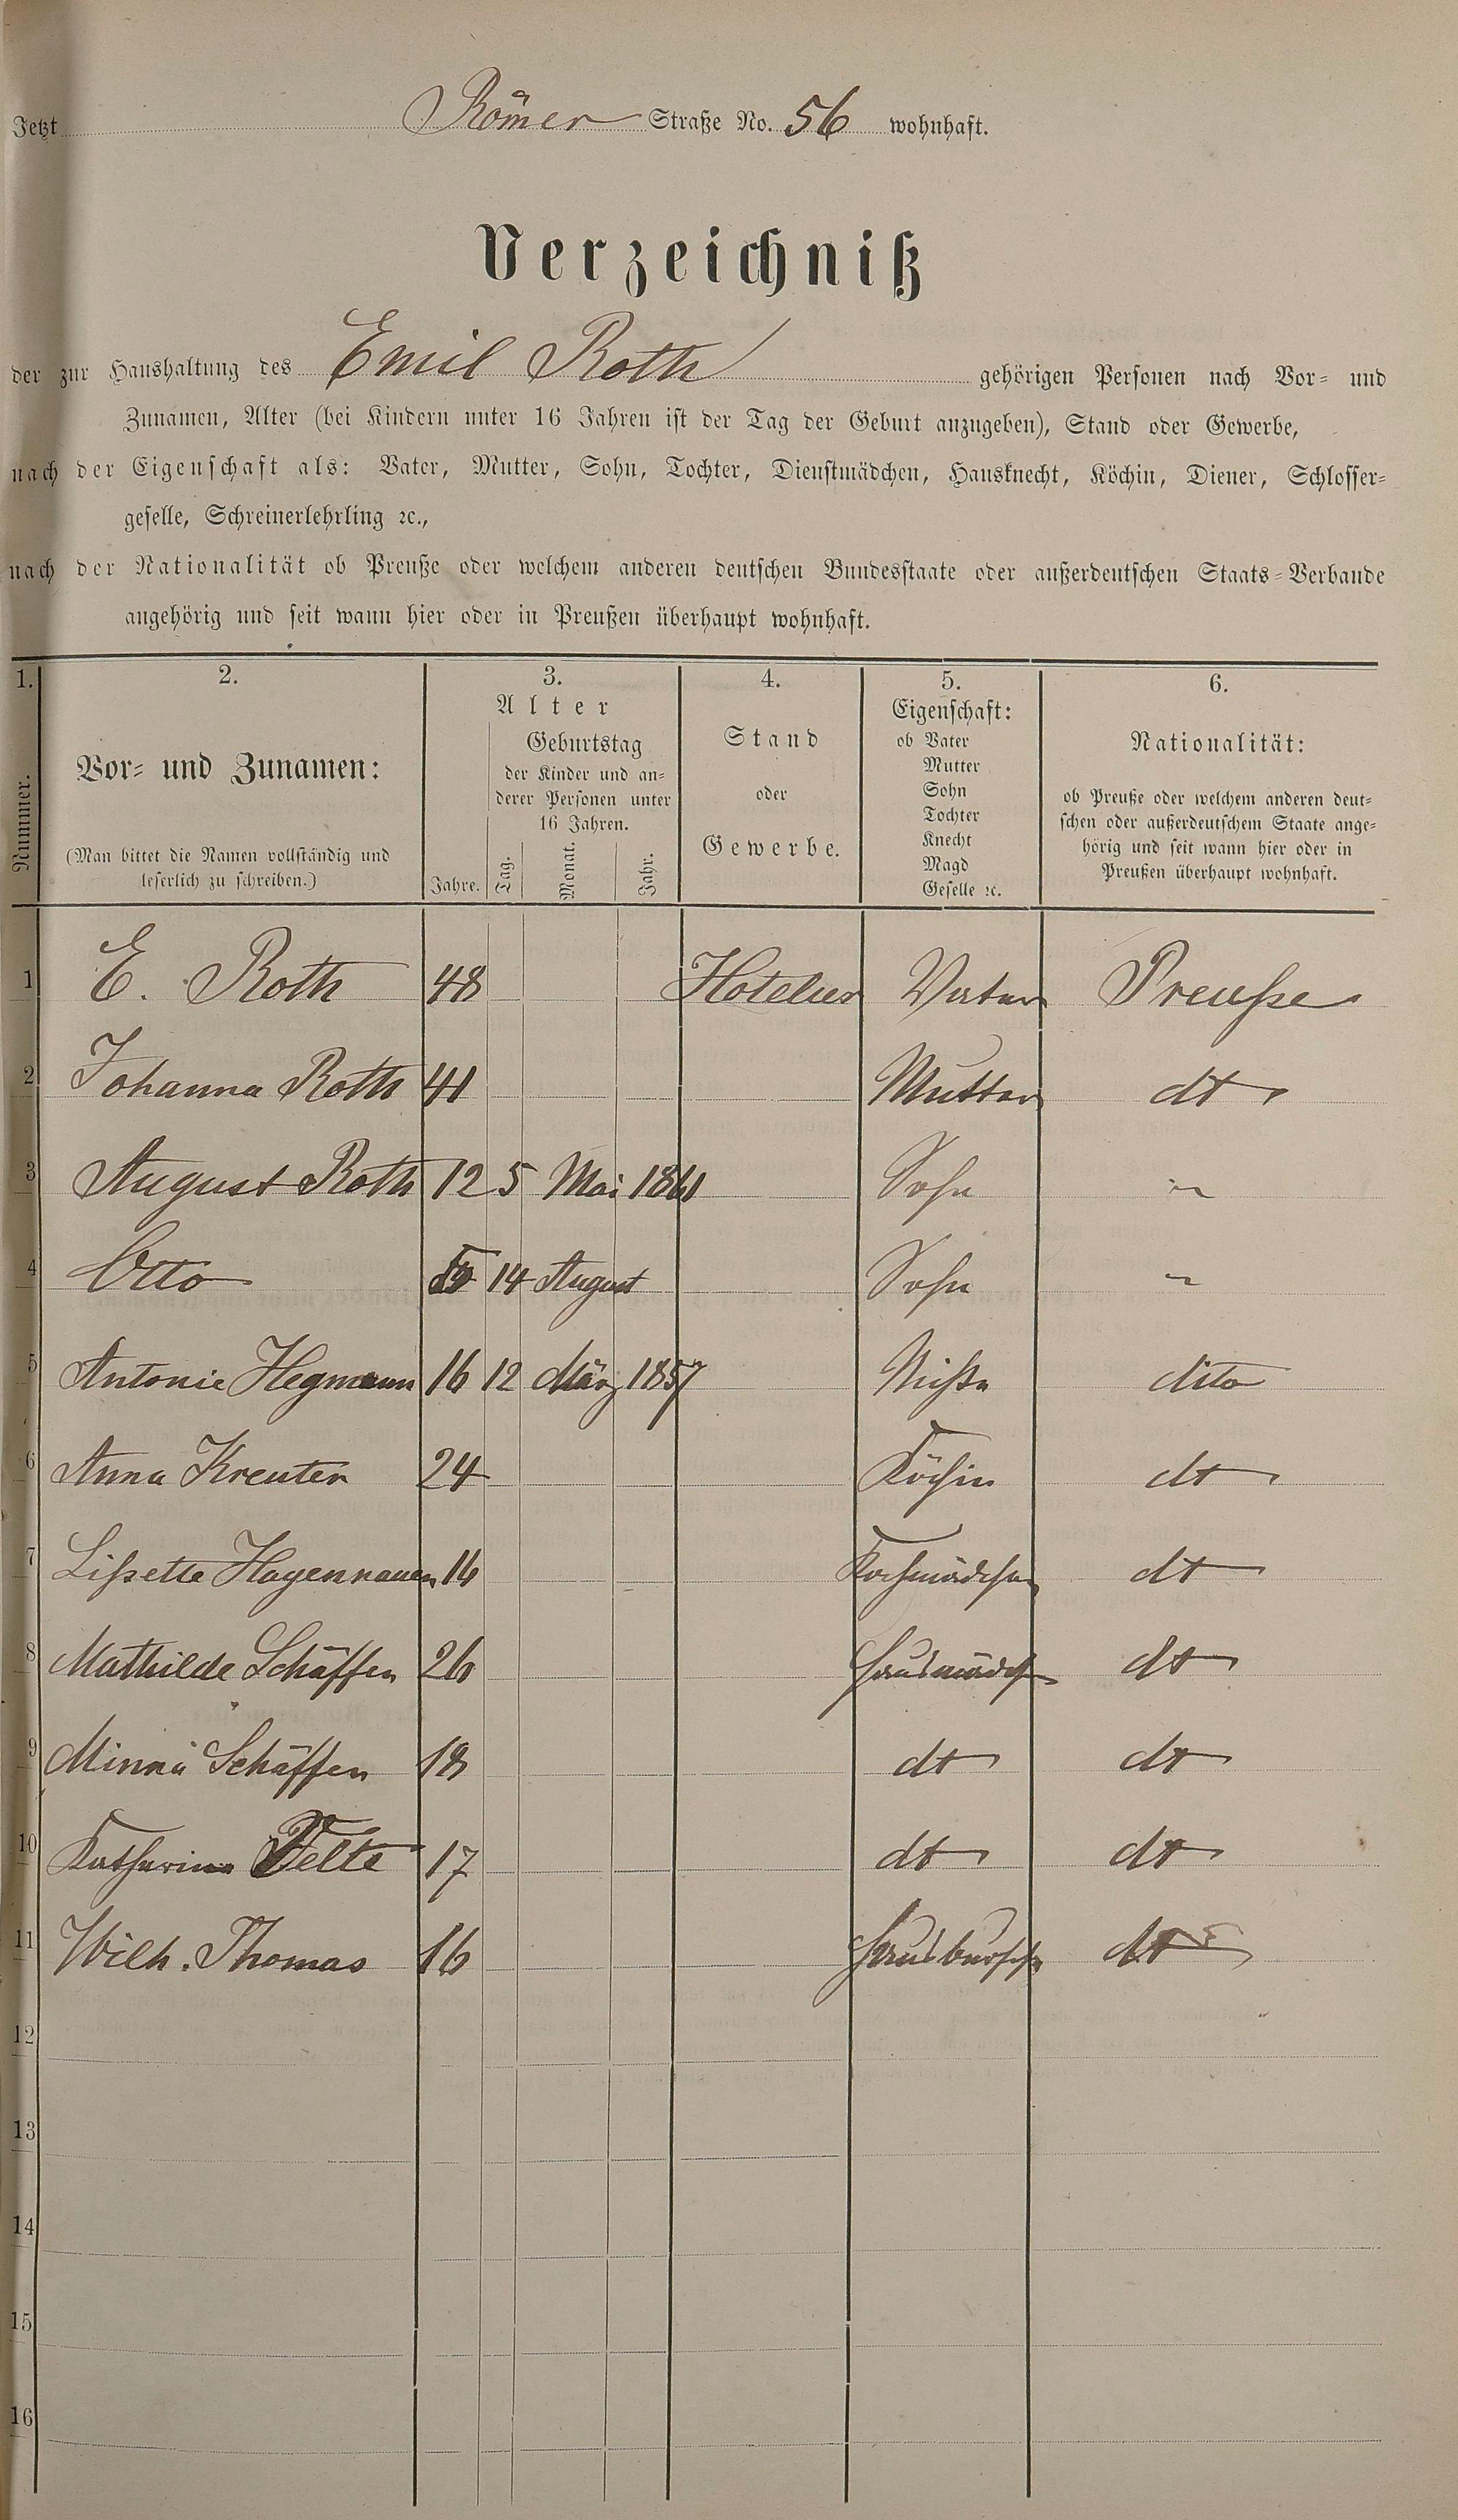 Jetzt Römer Straße No. 56 wohnhaft.
Verzeichniß
der zur Haushaltung des Emil Roth gehörigen Personen nach Vor- und
Zunamen, Alter (bei Kindern unter 16 Jahren ist der Tag der Geburt anzugeben), Stand oder Gewerbe,
nach der Eigenschaft als: Vater, Mutter, Sohn, Tochter, Dienstmädchen, Hausknecht, Köchin, Diener, Schlosser-
geselle, Schreinerlehrling ꝛc.,
nach der Nationalität ob Preuße oder welchem anderen deutschen Bundesstaate oder außerdeutschen Staats-Verbande
angehörig und seit wann hier oder in Preußen überhaupt wohnhaft.
1.
Nummer.
2.
Vor- und Zunamen:
(Man bittet die Namen vollständig und
leserlich zu schreiben.)
3.
Alter
Geburtstag
der Kinder und an-
derer Personen unter
16 Jahren.
Jahre. Tag. Monat. Jahr.
4.
Stand
oder
Gewerbe.
5.
Eigenschaft:
ob Vater
Mutter
Sohn
Tochter
Knecht
Magd
Geselle ꝛc.
6.
Nationalität:
ob Preuße oder welchem anderen deut-
schen oder außerdeutschem Staate ange-
hörig und seit wann hier oder in
Preußen überhaupt wohnhaft.
1 E. Roth 48 Hotelier Vater Preuße
2 Johanna Roth 41 Mutter dt
3 August Roth 12 5 Mai 1861 Sohn "
4 Otto 14 August Sohn "
5 Antonie Hegmann 16 12 März 1857 Nichte dito
6 Anna Kreuter 24 Köchin dt
7 Lißette Hagennauer 16 Kochmädchen dt
8 Mathilde Schäffer 26 Hausmädch dt
9 Minna Schäffer 18 dt dt
10 Katharina Velte 17 dt dt
11 Wilh. Thomas 16 Hausbursche dt
12
13
14
15
16